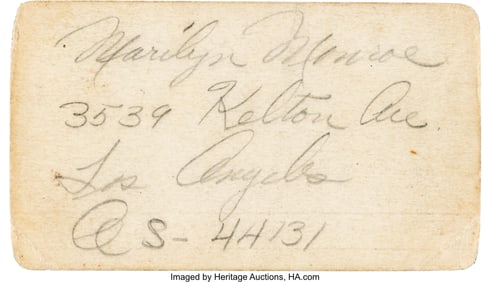 Marilyn Monroe
3539 Kelton Ave.
Los Angeles
S- 44131
Imaged by Heritage Auctions, HA.com